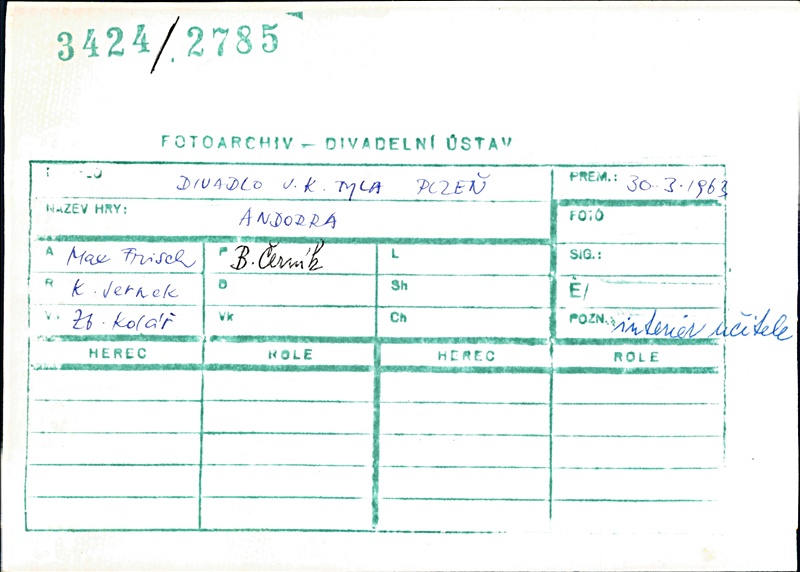 3424/2785
FOTOARCHIV – DIVADELNÍ ÚSTAV
DIVADLO J. K. TYLA PLZEŇ
PREM.: 30.3.1963
NÁZEV HRY: ANDORRA
FOTO
A Max Frisch
P B. Černík
L
SIG.:
R K. Jernek
D
Sh
Č/
V Zb. Kolář
Vk
Ch
POZN. interiér učitele
HEREC ROLE HEREC ROLE